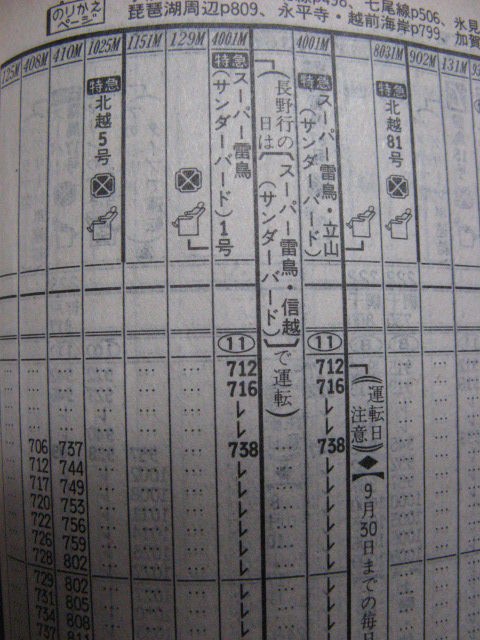 のりかえページ
琵琶湖周辺p809、永平寺・越前海岸p799、加賀
七尾線p506、氷見
408M 410M 1025M 1151M 129M 4001M 4001M 8031M 902M 131M
特急 北越5号
特急 スーパー雷鳥(サンダーバード)1号
(長野行の日は[スーパー雷鳥・信越(サンダーバード)]で運転)
特急 スーパー雷鳥・立山(サンダーバード)
特急 北越81号
⑪ ⑪
712 712
716 716
レ レ
レ レ
706 737 738 738
712 744 レ レ
717 749 レ レ
720 753 レ レ
722 756 レ レ
726 759 レ レ
728 802 レ レ
729 802 レ レ
731 805 レ レ
734 808 レ レ
737 811
(運転日注意)◆【9月30日までの毎